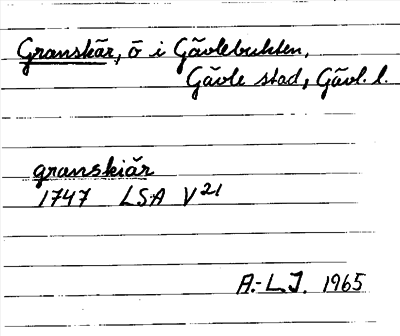 Granskär, ö i Gävlebukten,
Gävle stad, Gävl. l.
granskiär
1747 LSA V21
A.-L.J. 1965